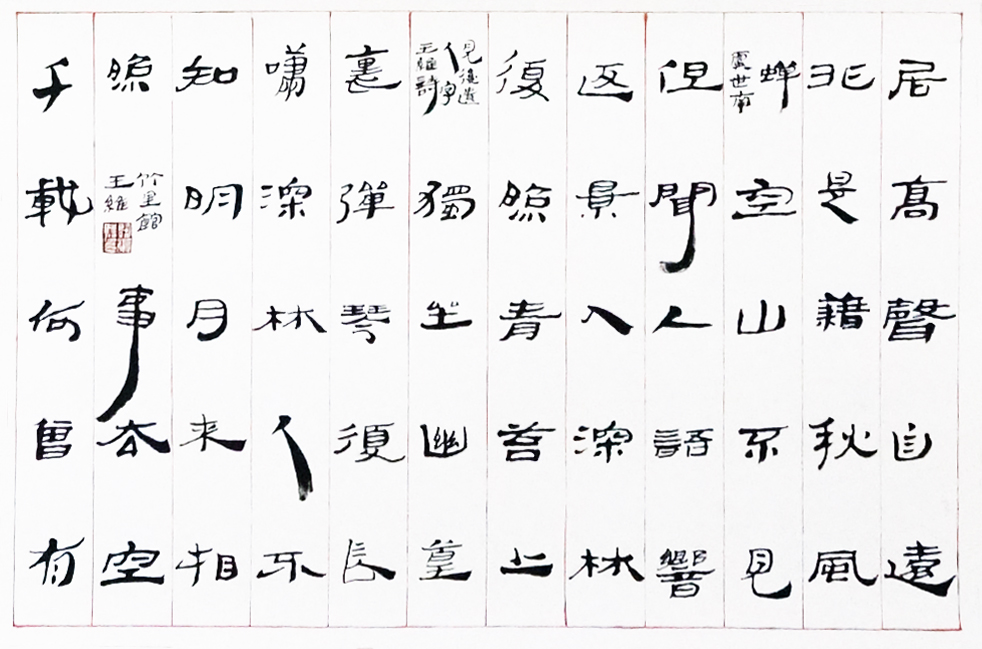 居高聲自遠
非是藉秋風
蟬 虞世南 空山不見
但聞人語響
返景入深林
復照青苔上
見後遺人字 王維詩 獨坐幽篁
裏彈琴復長
嘯深林人不
知明月来相
照 竹里館 王維 事本空
千載何曾有